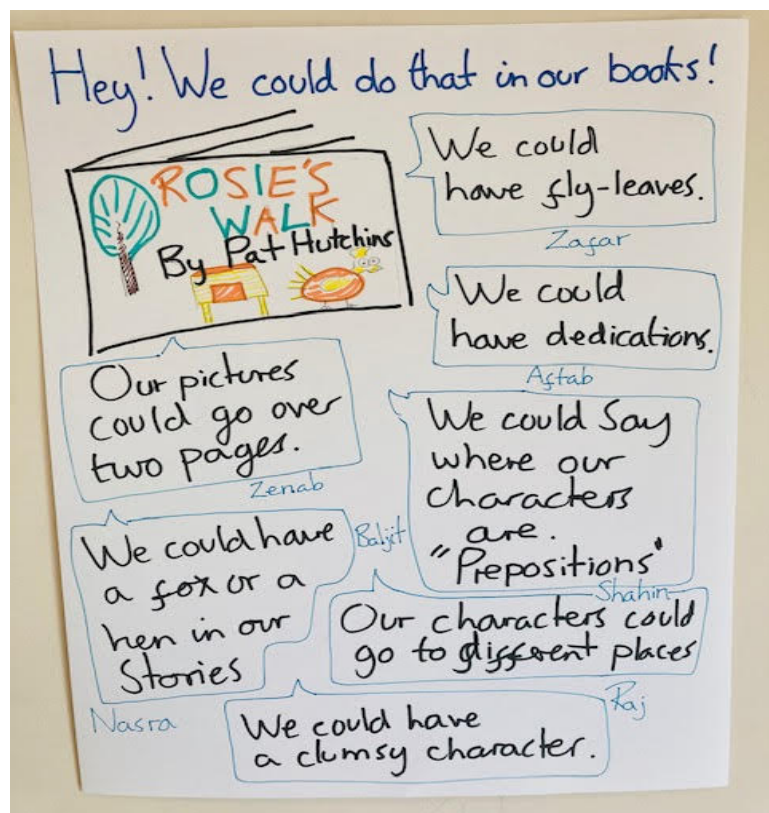 Hey! We could do that in our books!
ROSIE'S
WALK
By Pat Hutchins
We could
have fly-leaves.
Zafar
We could
have dedications.
Aftab
Our pictures
could go over
two pages.
Zenab
We could say
where our
characters
are.
"Prepositions"
Shahin
We could have
a fox or a
hen in our
Stories
Nasra
Baljit
Our characters could
go to different places
Raj
We could have
a clumsy character.